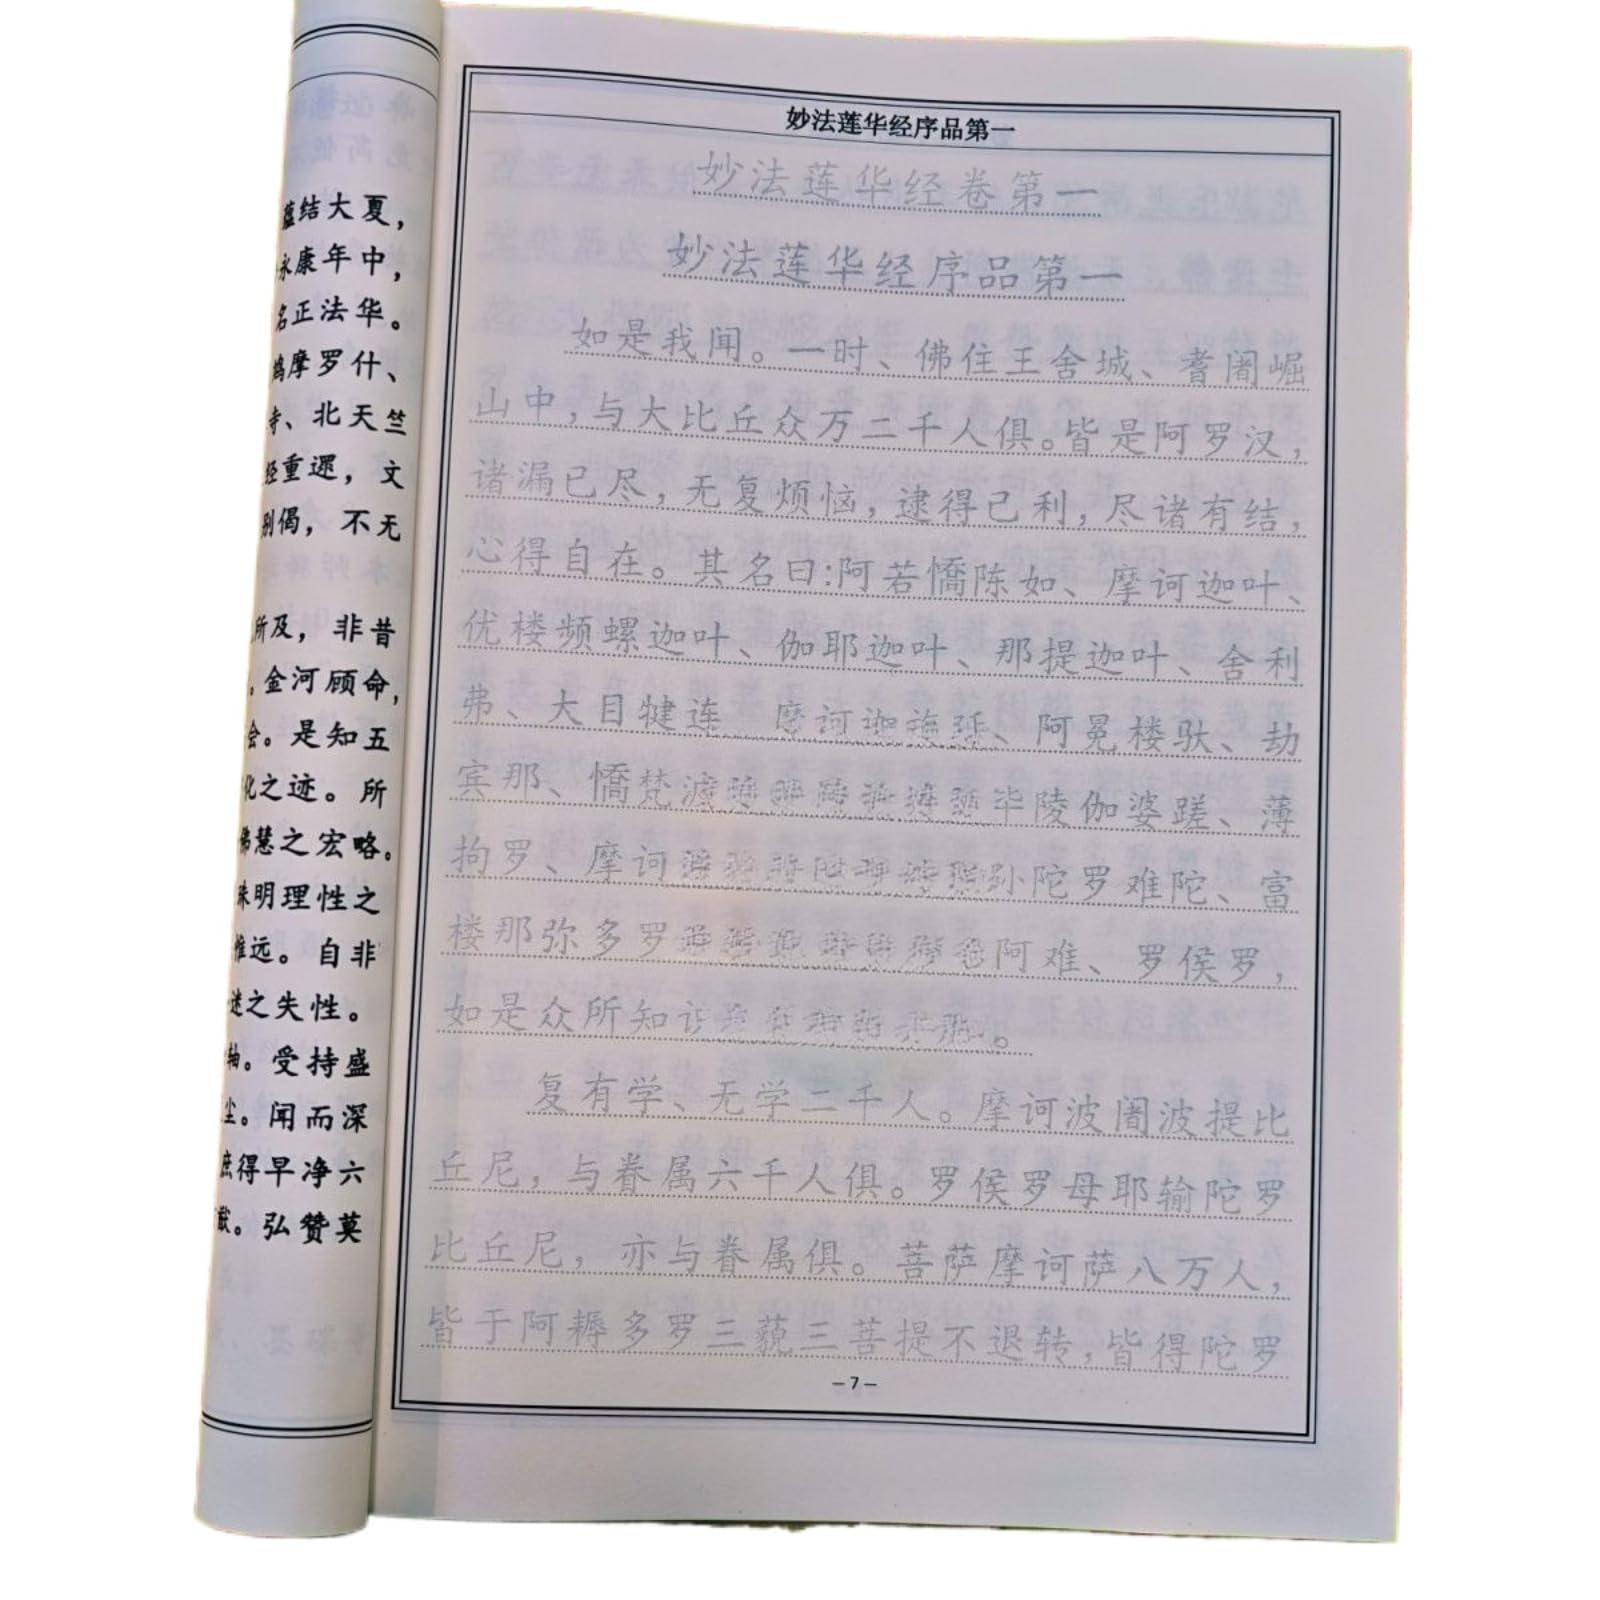 蕴结大夏，
永康年中，
名正法华。
鸠摩罗什、
寺、北天竺
经重遝，文
别偈，不无
所及，非昔
。金河顾命，
会。是知五
化之迹。所
佛慧之宏略。
殊明理性之
惟远。自非
迷之失性。
轴。受持盛
尘。闻而深
庶得早净六
猷。弘赞莫
妙法莲华经序品第一
妙法莲华经卷第一
妙法莲华经序品第一
如是我闻。一时、佛住王舍城、耆阇崛
山中，与大比丘众万二千人俱。皆是阿罗汉，
诸漏已尽，无复烦恼，逮得己利，尽诸有结，
心得自在。其名曰：阿若憍陈如、摩诃迦叶、
优楼频螺迦叶、伽耶迦叶、那提迦叶、舍利
弗、大目犍连 摩诃迦旃延、阿㝹楼驮、劫
宾那、憍梵波 毕陵伽婆蹉、薄
拘罗、摩诃 孙陀罗难陀、富
楼那弥多罗 阿难、罗侯罗，
如是众所知识 。
复有学、无学二千人。摩诃波阇波提比
丘尼，与眷属六千人俱。罗侯罗母耶输陀罗
比丘尼，亦与眷属俱。菩萨摩诃萨八万人，
皆于阿耨多罗三藐三菩提不退转，皆得陀罗
－7－